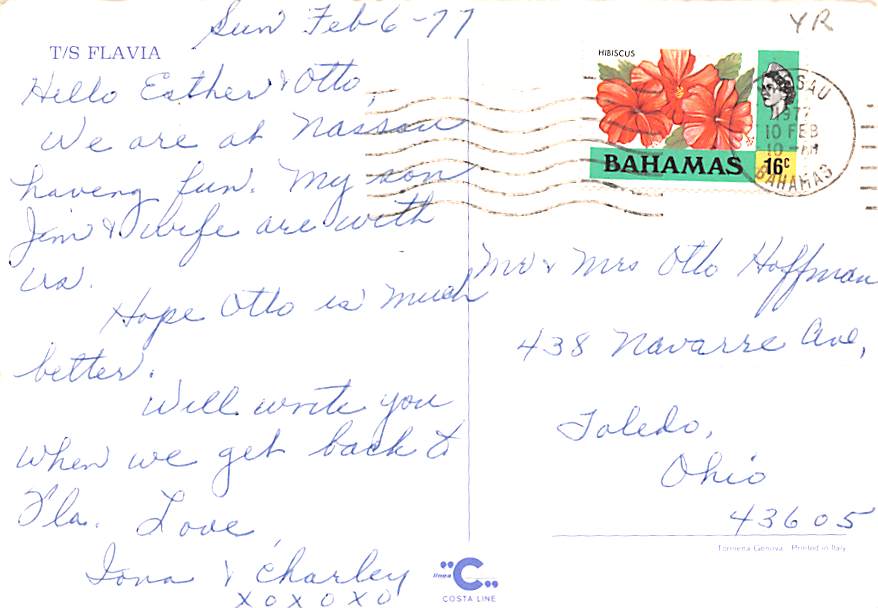 Sun Feb 6-77
T/S FLAVIA
Hello Esther & Otto,
We are at Nassau
having fun. My son
Jim & wife are with
us.
Hope Otto is much
better.
Will write you
when we get back to
Fla. Love,
Iona & Charley
XOXOXO
linea C
COSTA LINE
YR
HIBISCUS
BAHAMAS 16c
NASSAU
1977
10 FEB
10 - AM
BAHAMAS
Mr & Mrs Otto Hoffman
438 Navarre Ave,
Toledo,
Ohio
43605
Tormena Genova Printed in Italy